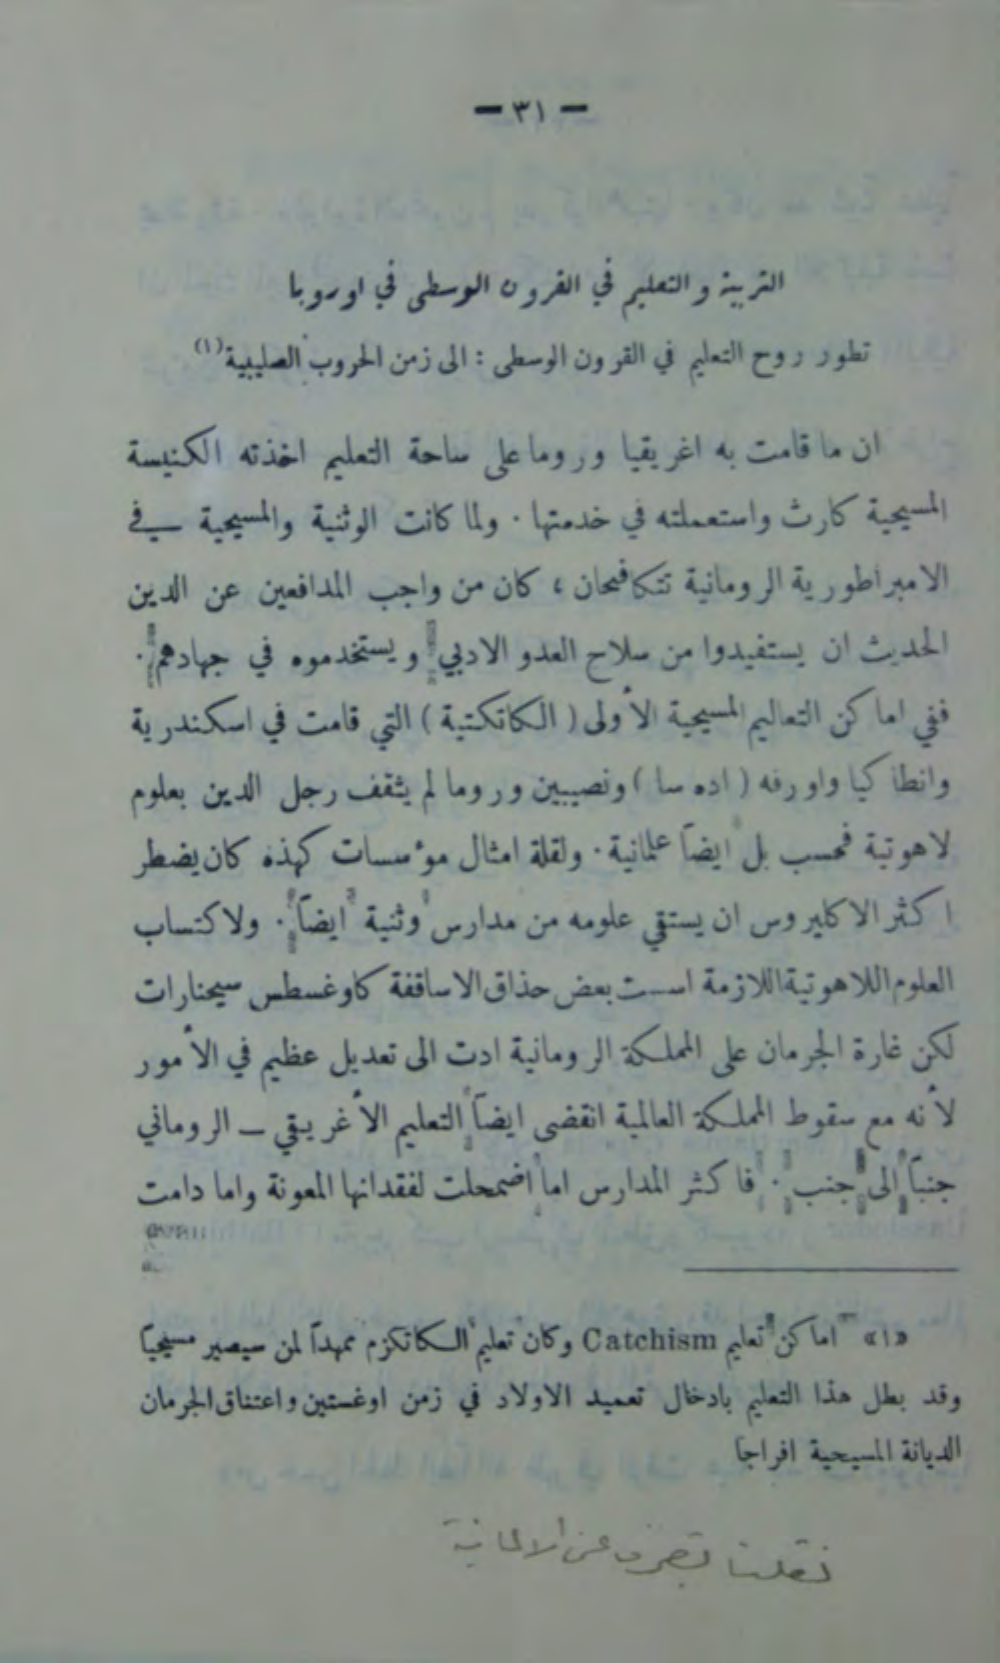 - ٣١ -
التربية والتعليم في القرون الوسطى في اوروبا
تطور روح التعليم في القرون الوسطى : الى زمن الحروب الصليبية (١)
ان ما قامت به اغريقيا وروما على ساحة التعليم اخذته الكنيسة
المسيحية كارث واستعملته في خدمتها . ولما كانت الوثنية والمسيحية في
الامبراطورية الرومانية تتكافحان ، كان من واجب المدافعين عن الدين
الحديث ان يستفيدوا من سلاح العدو الادبي ويستخدموه في جهادهم .
ففي اماكن التعاليم المسيحية الأولى ( الكاتكتية ) التي قامت في اسكندرية
وانطاكيا واورفه ( اده سا ) ونصيبين وروما لم يثقف رجل الدين بعلوم
لاهوتية فحسب بل ايضاً علمانية . ولقلة امثال مؤسسات كهذه كان يضطر
اكثر الاكليروس ان يستقي علومه من مدارس وثنية ايضاً . ولاكتساب
العلوم اللاهوتية اللازمة اسست بعض حذاق الاساقفة كاوغسطس سيمنارات
لكن غارة الجرمان على المملكة الرومانية ادت الى تعديل عظيم في الأمور
لأنه مع سقوط المملكة العالمية انقضى ايضاً التعليم الأغريقي - الروماني
جنباً الى جنب . فاكثر المدارس اما اضمحلت لفقدانها المعونة واما دامت
«١» اماكن تعليم Catchism وكان تعليم الكاتكزم ممهداً لمن سيصير مسيحياً
وقد بطل هذا التعليم بادخال تعميد الاولاد في زمن اوغستين واعتناق الجرمان
الديانة المسيحية افراجا
نقلت بتصرف عن الالمانية